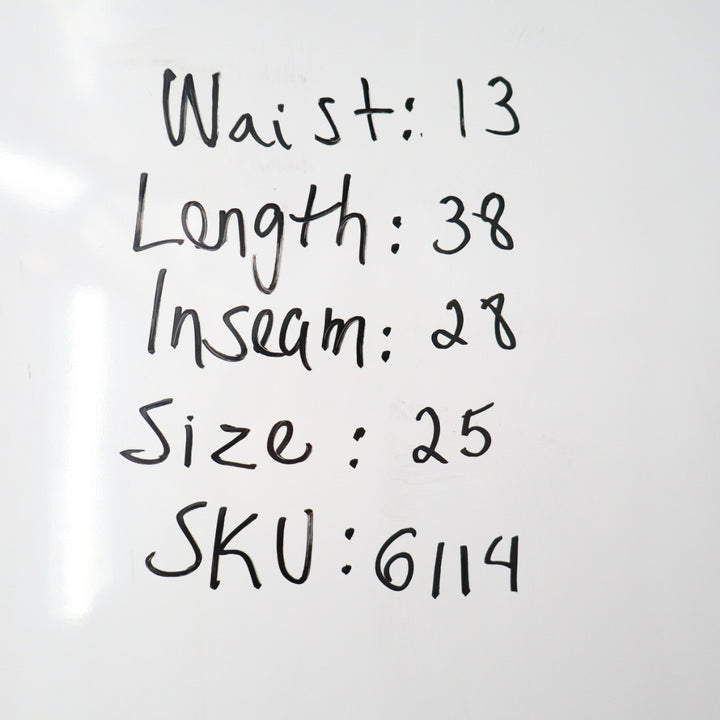 Waist: 13
Length: 38
Inseam: 28
Size: 25
SKU: 6114